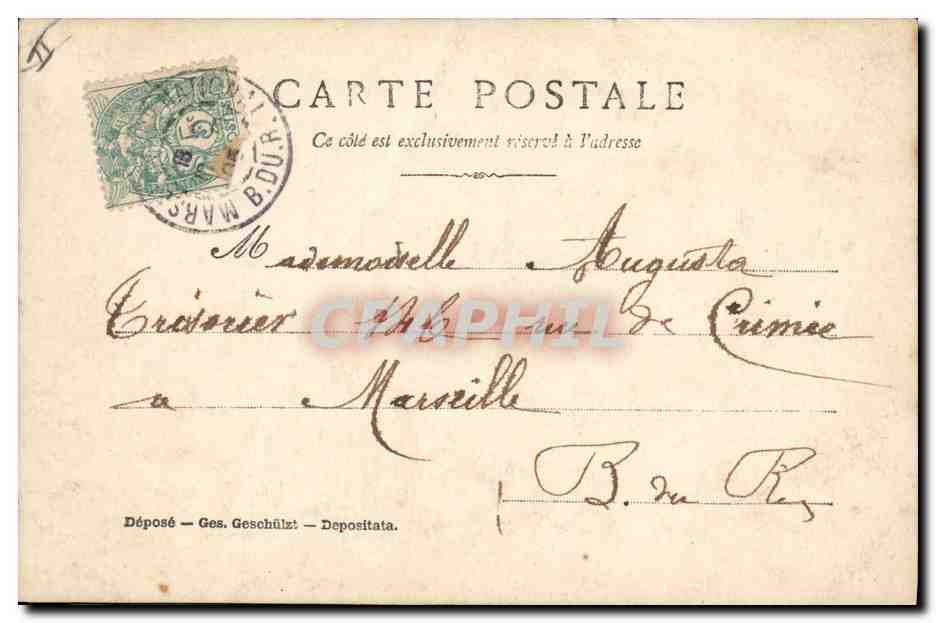 II
CARTE POSTALE
Ce côté est exclusivement réservé à l'adresse
5c
MARS B.DU.R.
Mademoiselle Augusta
Trésorier 146 rue de Crimée
CPAPHIL
a Marseille
B. du R
Déposé — Ges. Geschützt — Depositata.